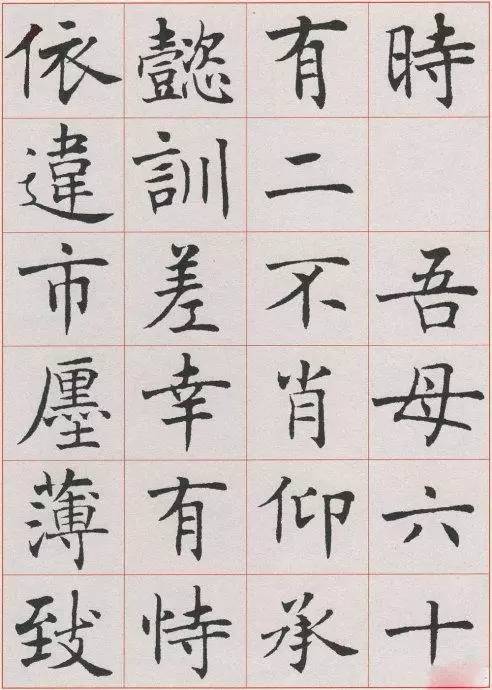 時　吾母六十
有二不肖仰承
懿訓差幸有恃
依違市廛薄致